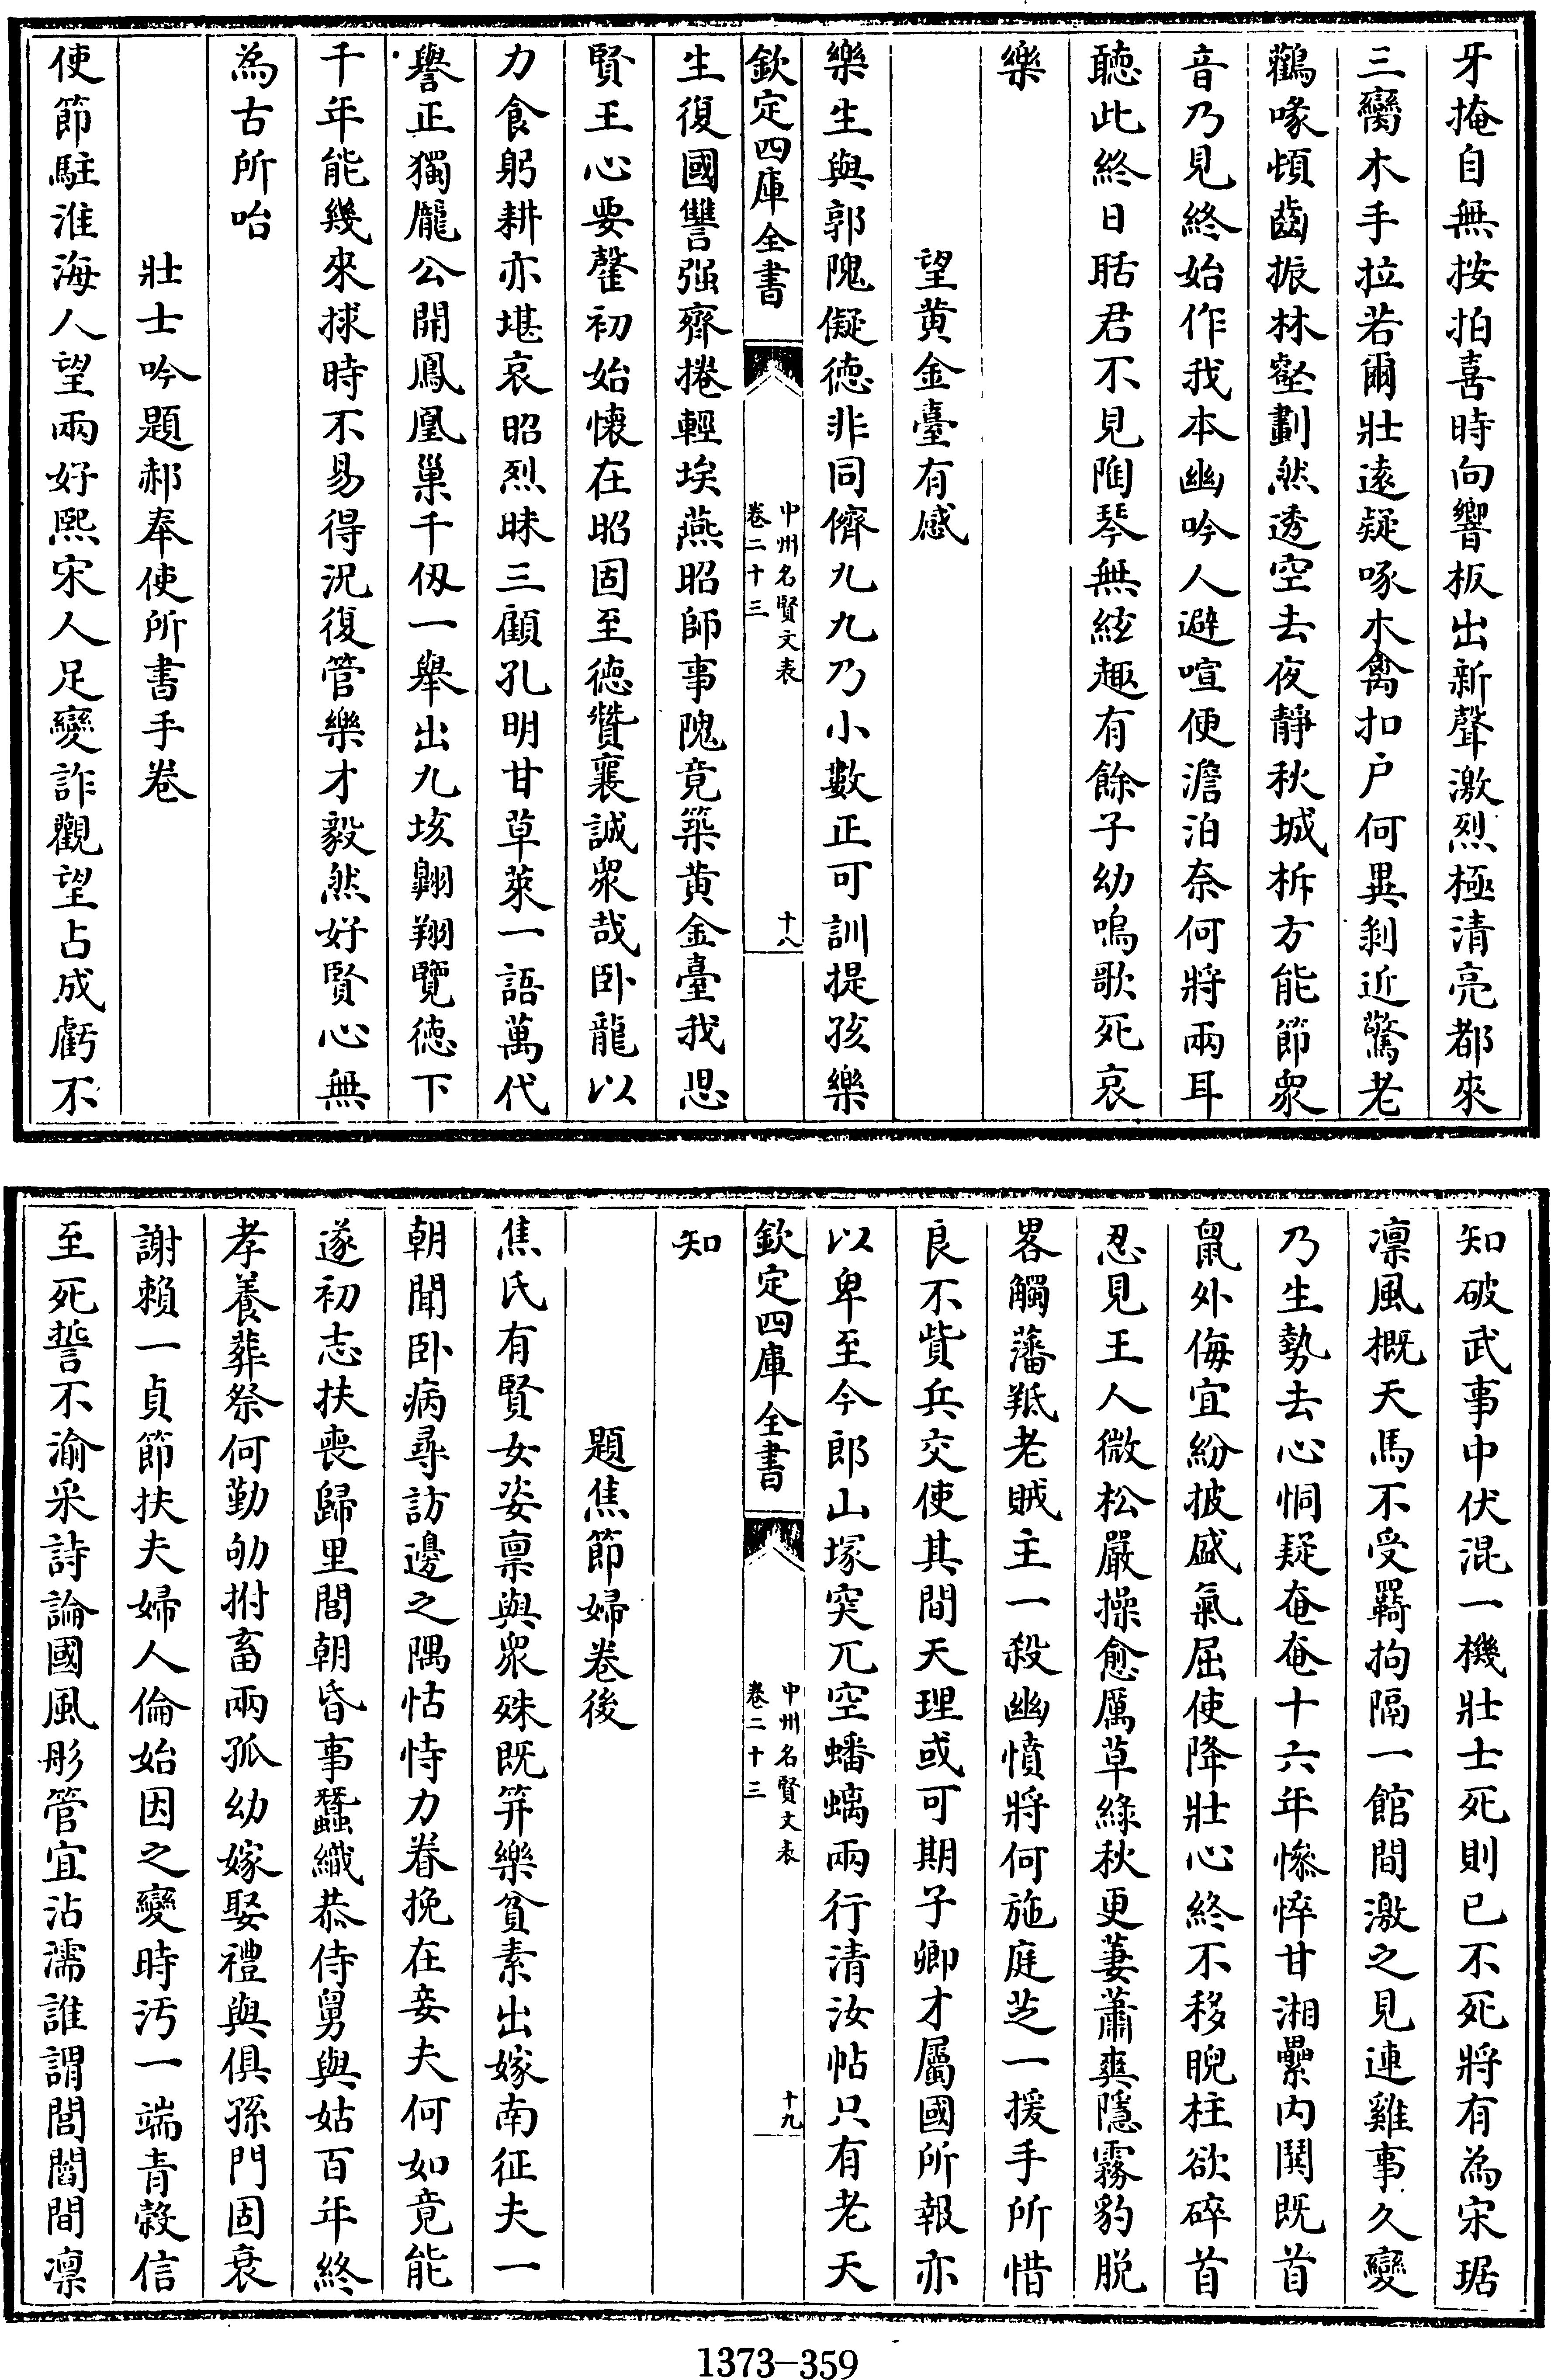 牙掩自無按拍喜時向響板出新聲激烈極清亮都來
三臠木手拉若爾壯遠疑啄木禽扣户何異剝近驚老
鸛喙頓齒振林壑劃然透空去夜靜秋城柝方能節衆
音乃見終始作我本幽吟人避喧便澹泊奈何將兩耳
聽此終日聒君不見陶琴無絃趣有餘子幼嗚歌死哀
樂
望黄金臺有感
樂生與郭隗儗徳非同儕九九乃小數正可訓提孩樂
欽定四庫全書
中州名賢文表
卷二十三
十八
生復國讐强齊捲輕埃燕昭師事隗竟築黄金臺我思
賢王心要鼞初始懐在昭固至徳贊襄誠衆哉卧龍以
力食躬耕亦堪哀昭烈昧三顧孔明甘草萊一語萬代
譽正獨龎公開鳳凰巢千仭一舉出九垓翺翔覽徳下
千年能幾來捄時不易得況復管樂才毅然好賢心無
為古所咍
壯士吟題郝奉使所書手卷
使節駐淮海人望兩好熙宋人足變詐觀望占成虧不
知破武事中伏混一機壯士死則已不死將有為宋琚
凛風概天馬不受羈拘隔一館間激之見連雞事久變
乃生勢去心恫疑奄奄十六年慘悴甘湘纍内鬩既首
鼠外侮宜紛披盛氣屈使降壯心終不移睨柱欲碎首
忍見王人微松嚴操愈厲草綠秋更萋蕭爽隱霧豹脱
畧觸藩羝老賊主一殺幽憤將何施庭芝一援手所惜
良不貲兵交使其間天理或可期子卿才屬國所報亦
以卑至今郎山塚突兀空蟠螭兩行清汝帖只有老天
欽定四庫全書
中州名賢文表
卷二十三
十九
知
題焦節婦卷後
焦氏有賢女姿禀與衆殊既笄樂貧素出嫁南征夫一
朝聞卧病尋訪邊之隅怙恃力眷挽在妾夫何如竟能
遂初志扶喪歸里閭朝昏事蠶織恭侍舅與姑百年終
孝養葬祭何勤劬拊畜兩孤幼嫁娶禮與俱孫門固衰
謝賴一貞節扶夫婦人倫始因之變時汚一端青縠信
至死誓不渝采詩論國風彤管宜沾濡誰謂閭閻間凛
1373-359